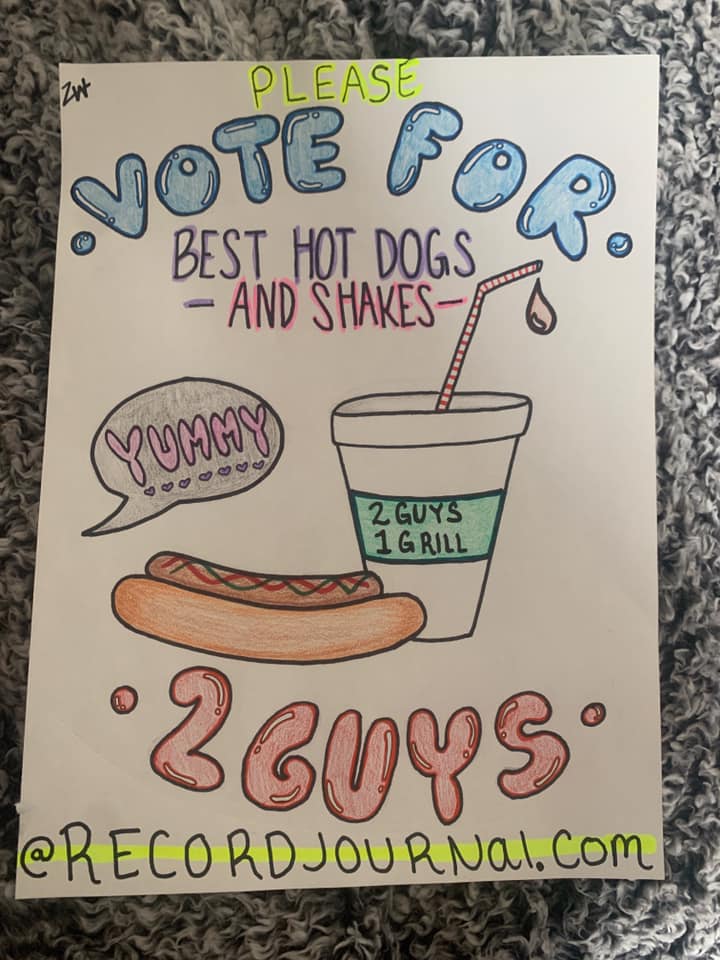 ZW
PLEASE
VOTE FOR
BEST HOT DOGS
- AND SHAKES -
YUMMY
2 GUYS
1 GRILL
2 GUYS
@RECORDJOURNal.Com